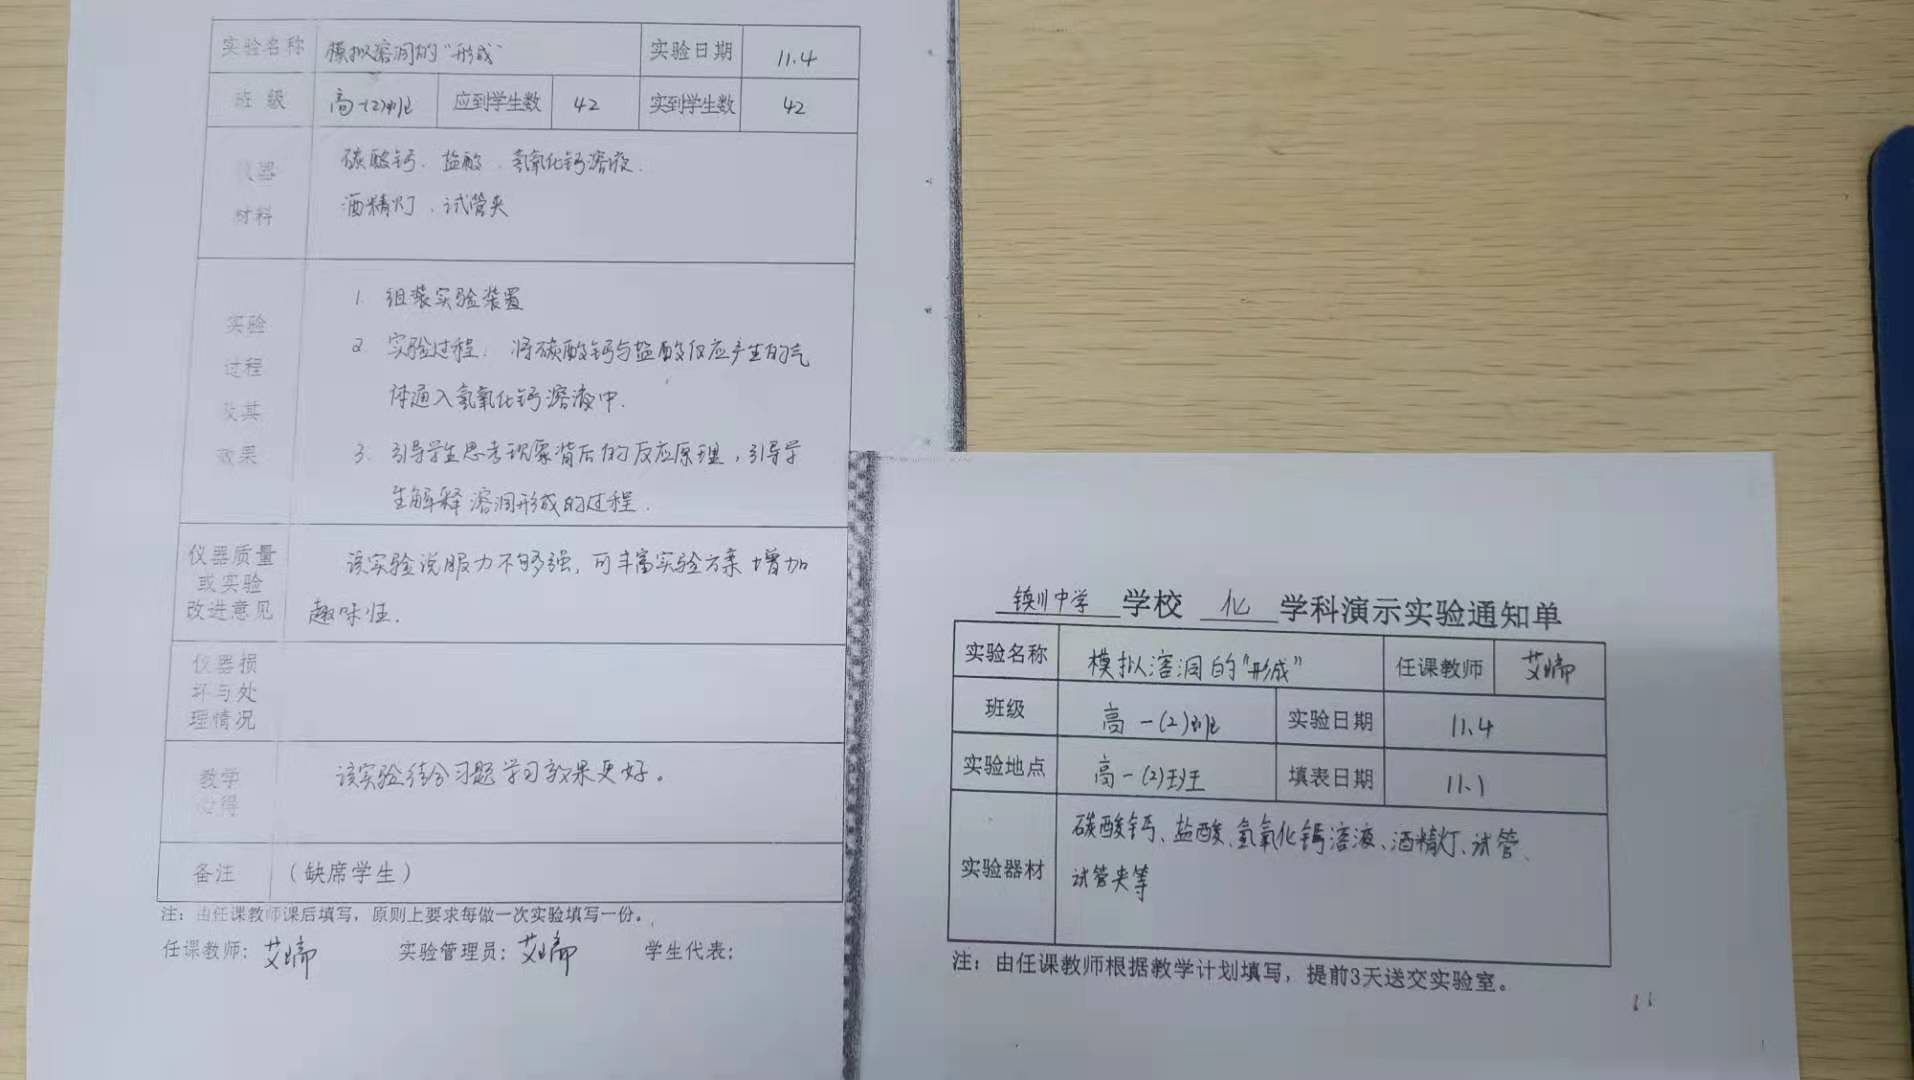 实验名称 模拟溶洞的“形成” 实验日期 11.4
班级 高一(2)班 应到学生数 42 实到学生数 42
仪器材料
碳酸钙、盐酸、氢氧化钙溶液.
酒精灯、试管夹
实验过程及其效果
1. 组装实验装置
2. 实验过程: 将碳酸钙与盐酸反应产生的气
体通入氢氧化钙溶液中.
3. 引导学生思考现象背后的反应原理,引导学
生解释溶洞形成的过程.
仪器质量
或实验
改进意见
该实验说服力不够强,可丰富实验方案增加
趣味性.
仪器损
坏与处
理情况
教学
心得
该实验结合习题学习效果更好。
备注 (缺席学生)
注:由任课教师课后填写,原则上要求每做一次实验填写一份。
任课教师: 实验管理员: 学生代表:
镇川中学 学校 化 学科演示实验通知单
实验名称 模拟溶洞的“形成” 任课教师
班级 高一(2)班 实验日期 11.4
实验地点 高一(2)班 填表日期 11.1
实验器材
碳酸钙、盐酸、氢氧化钙溶液、酒精灯、试管、
试管夹等
注:由任课教师根据教学计划填写,提前3天送交实验室。